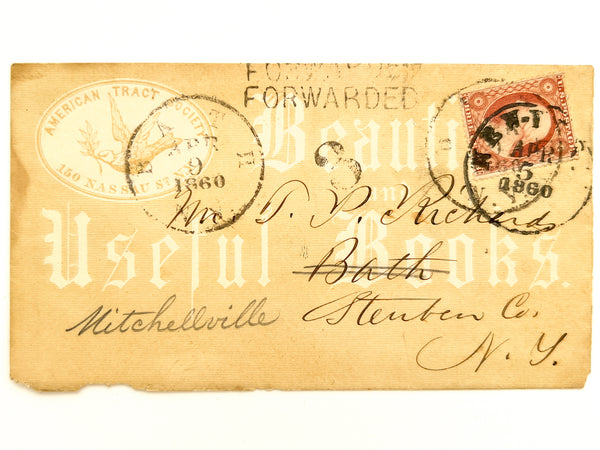 FORWARDED
FORWARDED
AMERICAN TRACT SOCIETY
150 NASSAU ST. N.Y.
BATH
APR
9
1860
3
NEW-YORK
APR
5
1860
Beautiful
and
Useful Books.
Mr. T. P. Richards
Bath
Mitchellville Steuben Co.
N. Y.